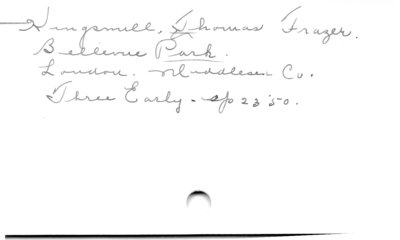 Kingsmill, Thomas Frazer.
Bellevue Park.
London. Middlesex Co.
Three Early - sp 23 '50.